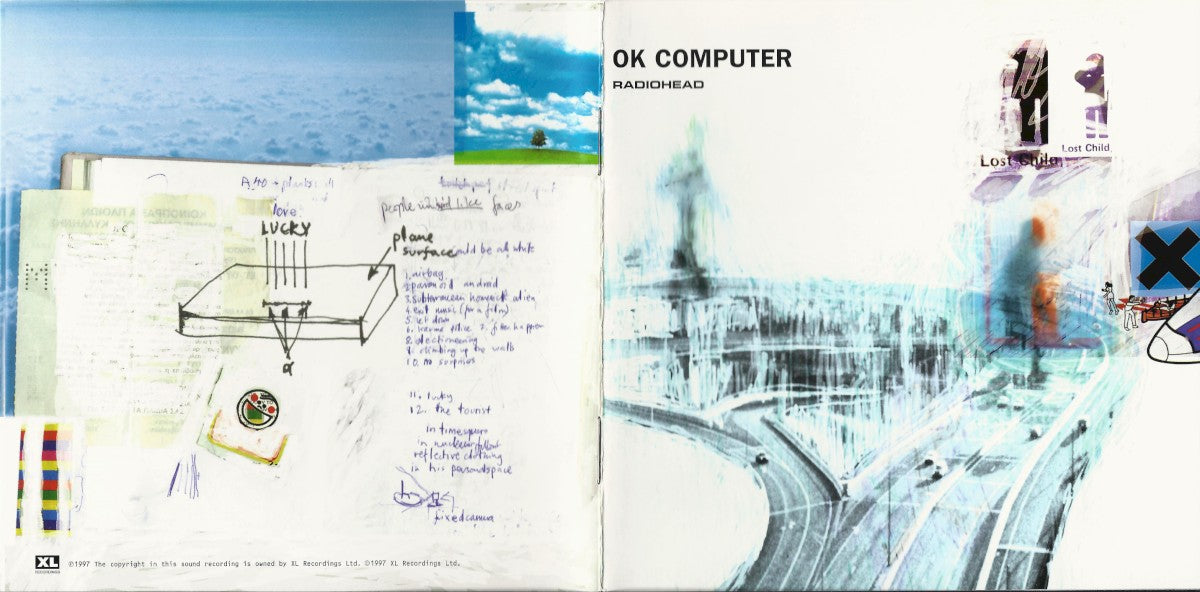 love
LUCKY
plane
surface
a
M
people
faces
could be all white
1. airbag
2. paranoid android
3. subterranean homesick alien
4. exit music (for a film)
5. let down
6. karma police 7. fitter happier
8. electioneering
9. climbing up the walls
10. no surprises
11. lucky
12. the tourist
in times square
in nuclear fallout
reflective clothing
in his personal space
fixed camera
XL
RECORDINGS
℗1997 The copyright in this sound recording is owned by XL Recordings Ltd. ©1997 XL Recordings Ltd.
OK COMPUTER
RADIOHEAD
Lost Child
Lost Child